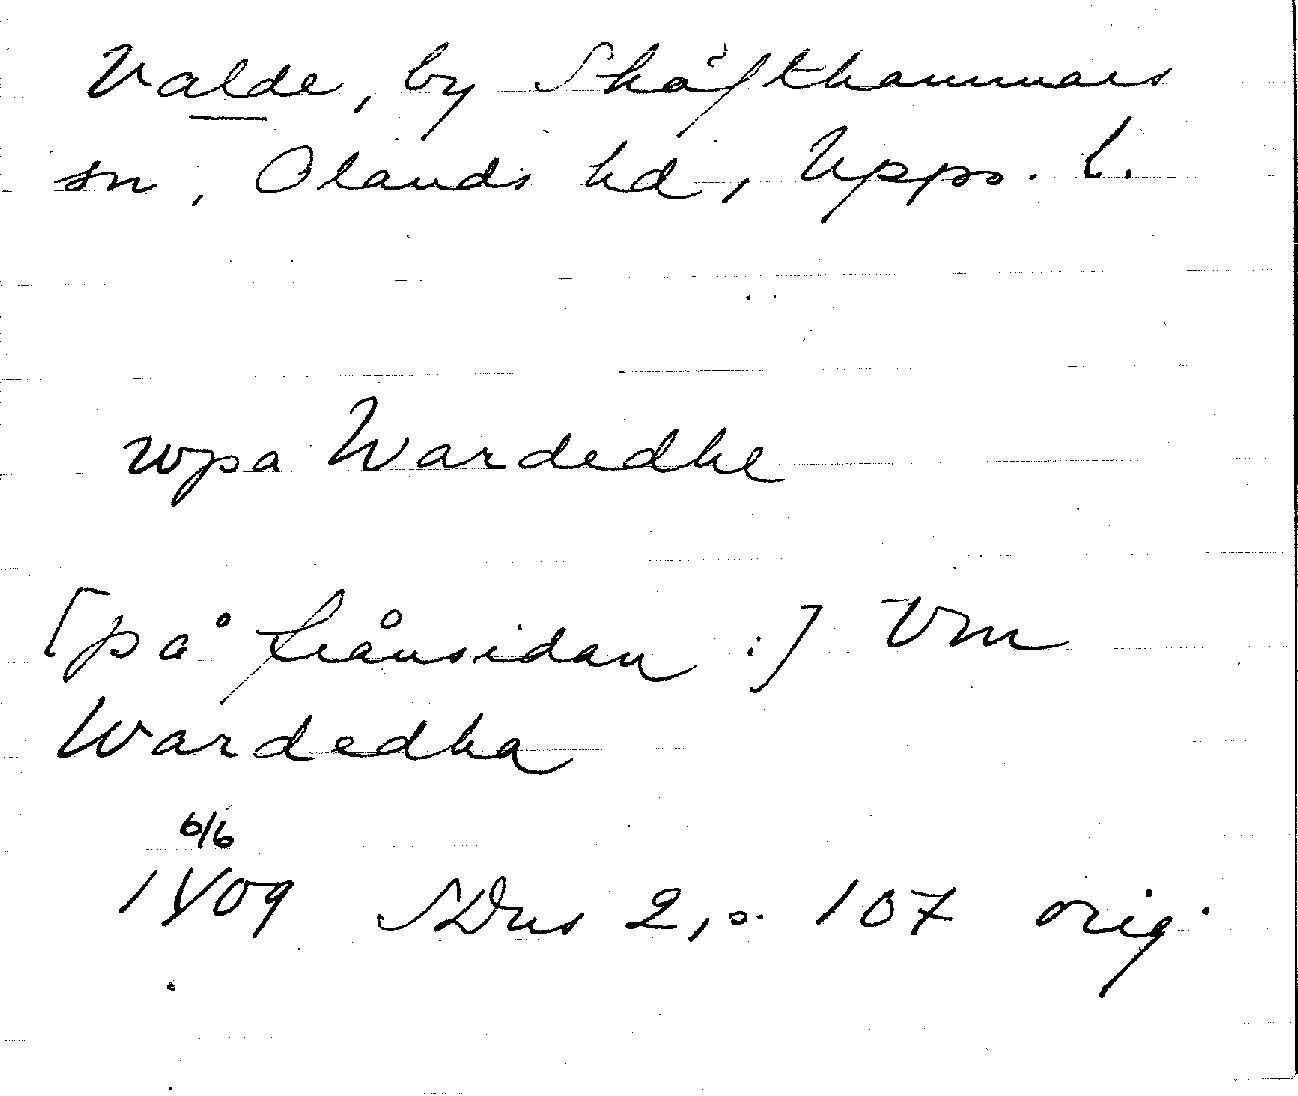 Valde, by Skäfthammars
sn, Olands hd, Upps. l.
wpa Wardedhe
[på frånsidan :] Vm
Wardedha
6/6
1409 SDns 2, s. 107 orig.